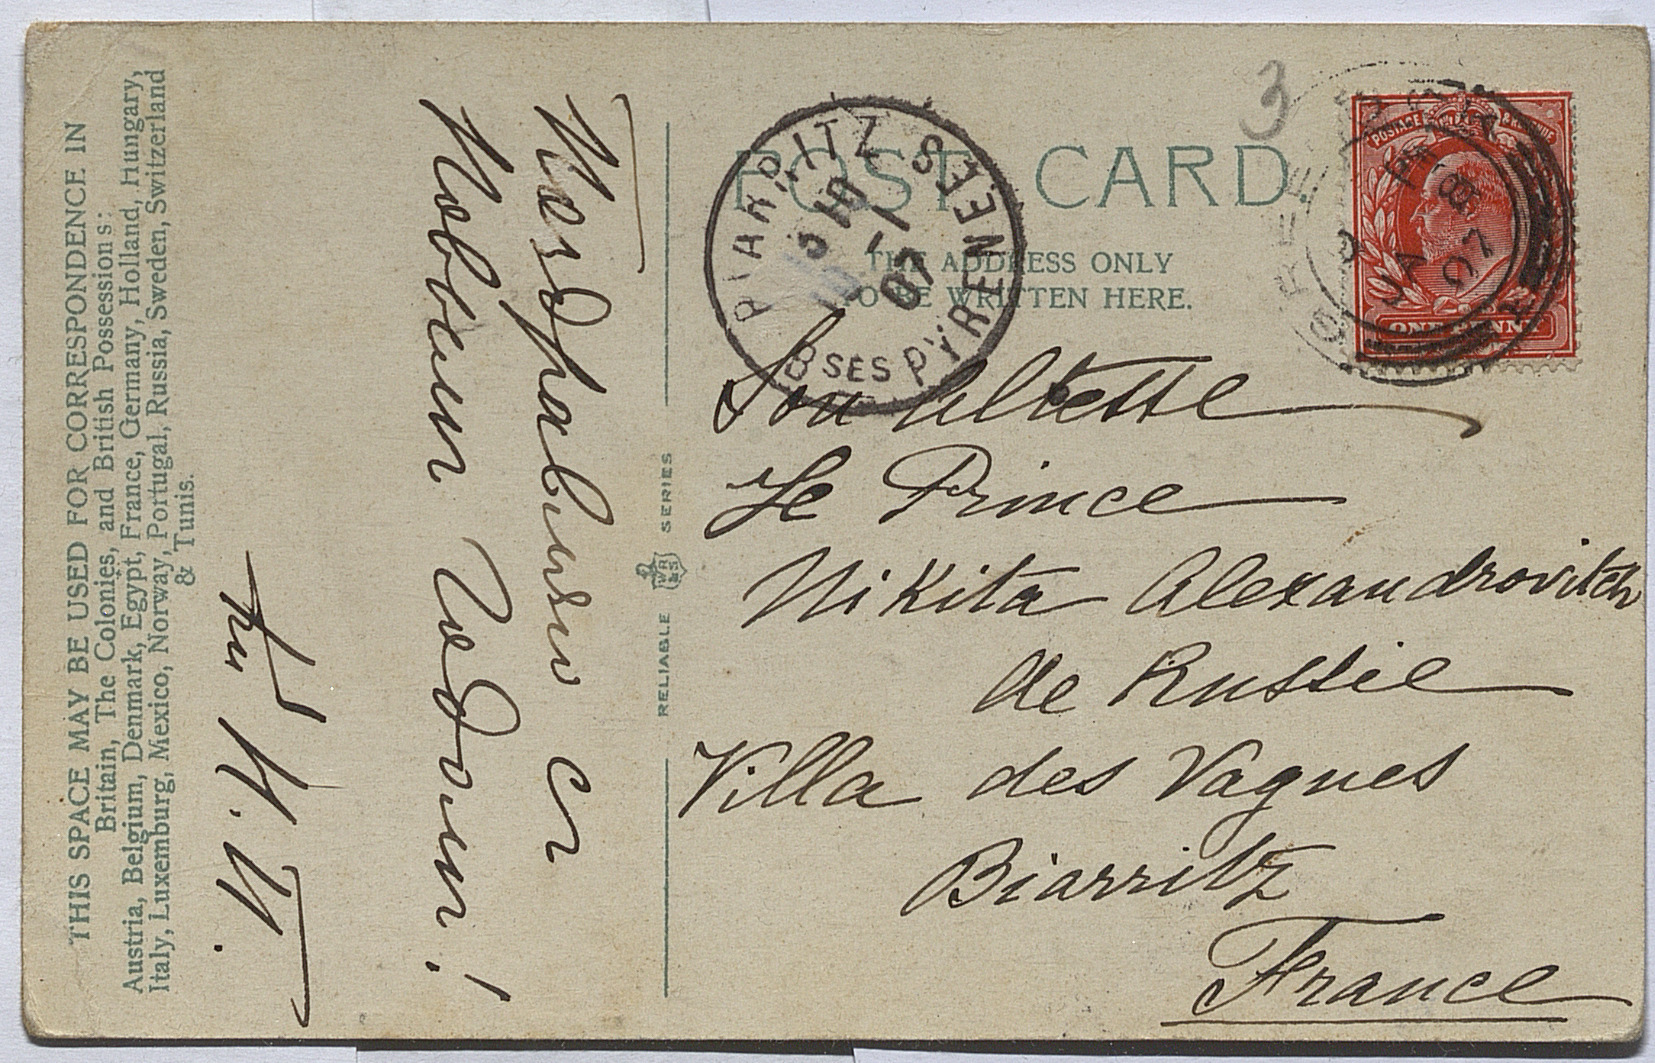 THIS SPACE MAY BE USED FOR CORRESPONDENCE IN
Britain, The Colonies, and British Possessions:
Austria, Belgium, Denmark, Egypt, France, Germany, Holland, Hungary,
Italy, Luxemburg, Mexico, Norway, Portugal, Russia, Sweden, Switzerland
& Tunis.
Поздравляю съ
Новымъ Годомъ!
RELIABLE WR&S SERIES
POST CARD
THE ADDRESS ONLY
TO BE WRITTEN HERE.
3
BIARRITZ
3 10
-1
07
BSES PYRENEES
POSTAGE & REVENUE
ONE PENNY
JA 8
07
Son Altesse
Le Prince
Nikita Alexandrovitch
de Russie
Villa des Vagues
Biarritz
France